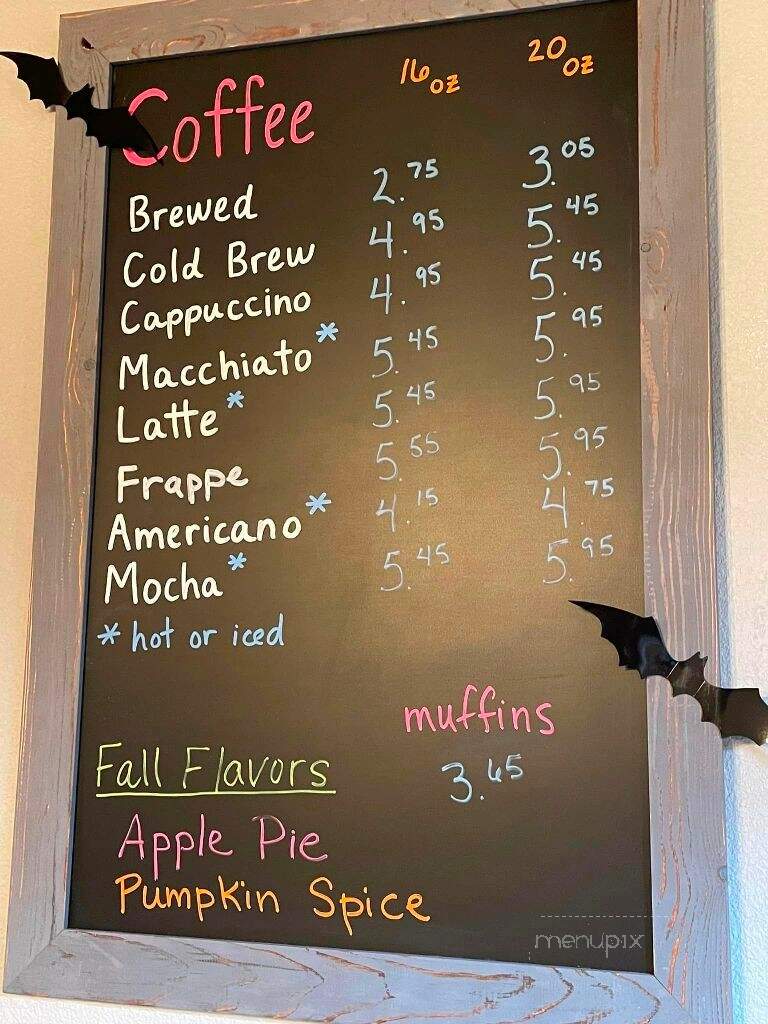 Coffee 16 oz 20 oz
Brewed 2.75 3.05
Cold Brew 4.95 5.45
Cappuccino 4.95 5.45
Macchiato* 5.45 5.95
Latte* 5.45 5.95
Frappe 5.55 5.95
Americano* 4.15 4.75
Mocha* 5.45 5.95
* hot or iced
muffins
3.65
Fall Flavors
Apple Pie
Pumpkin Spice
menupix